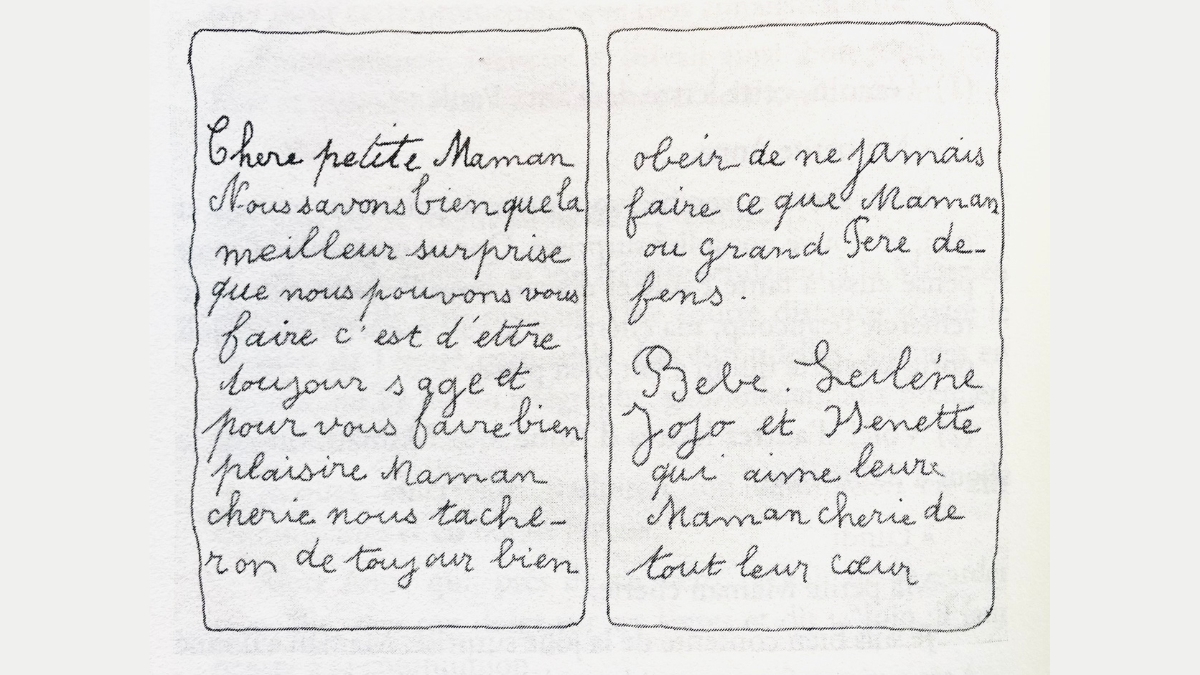 Chere petite Maman
Nous savons bien que la
meilleur surprise
que nous pouvons vous
faire c'est d'ettre
toujour sage et
pour vous faire bien
plaisire Maman
cherie nous tache-
ron de toujour bien
obeir de ne jamais
faire ce que Maman
ou grand Pere de-
fens.
Bebe.
Jojo et
qui aime leure
Maman cherie de
tout leur cœur